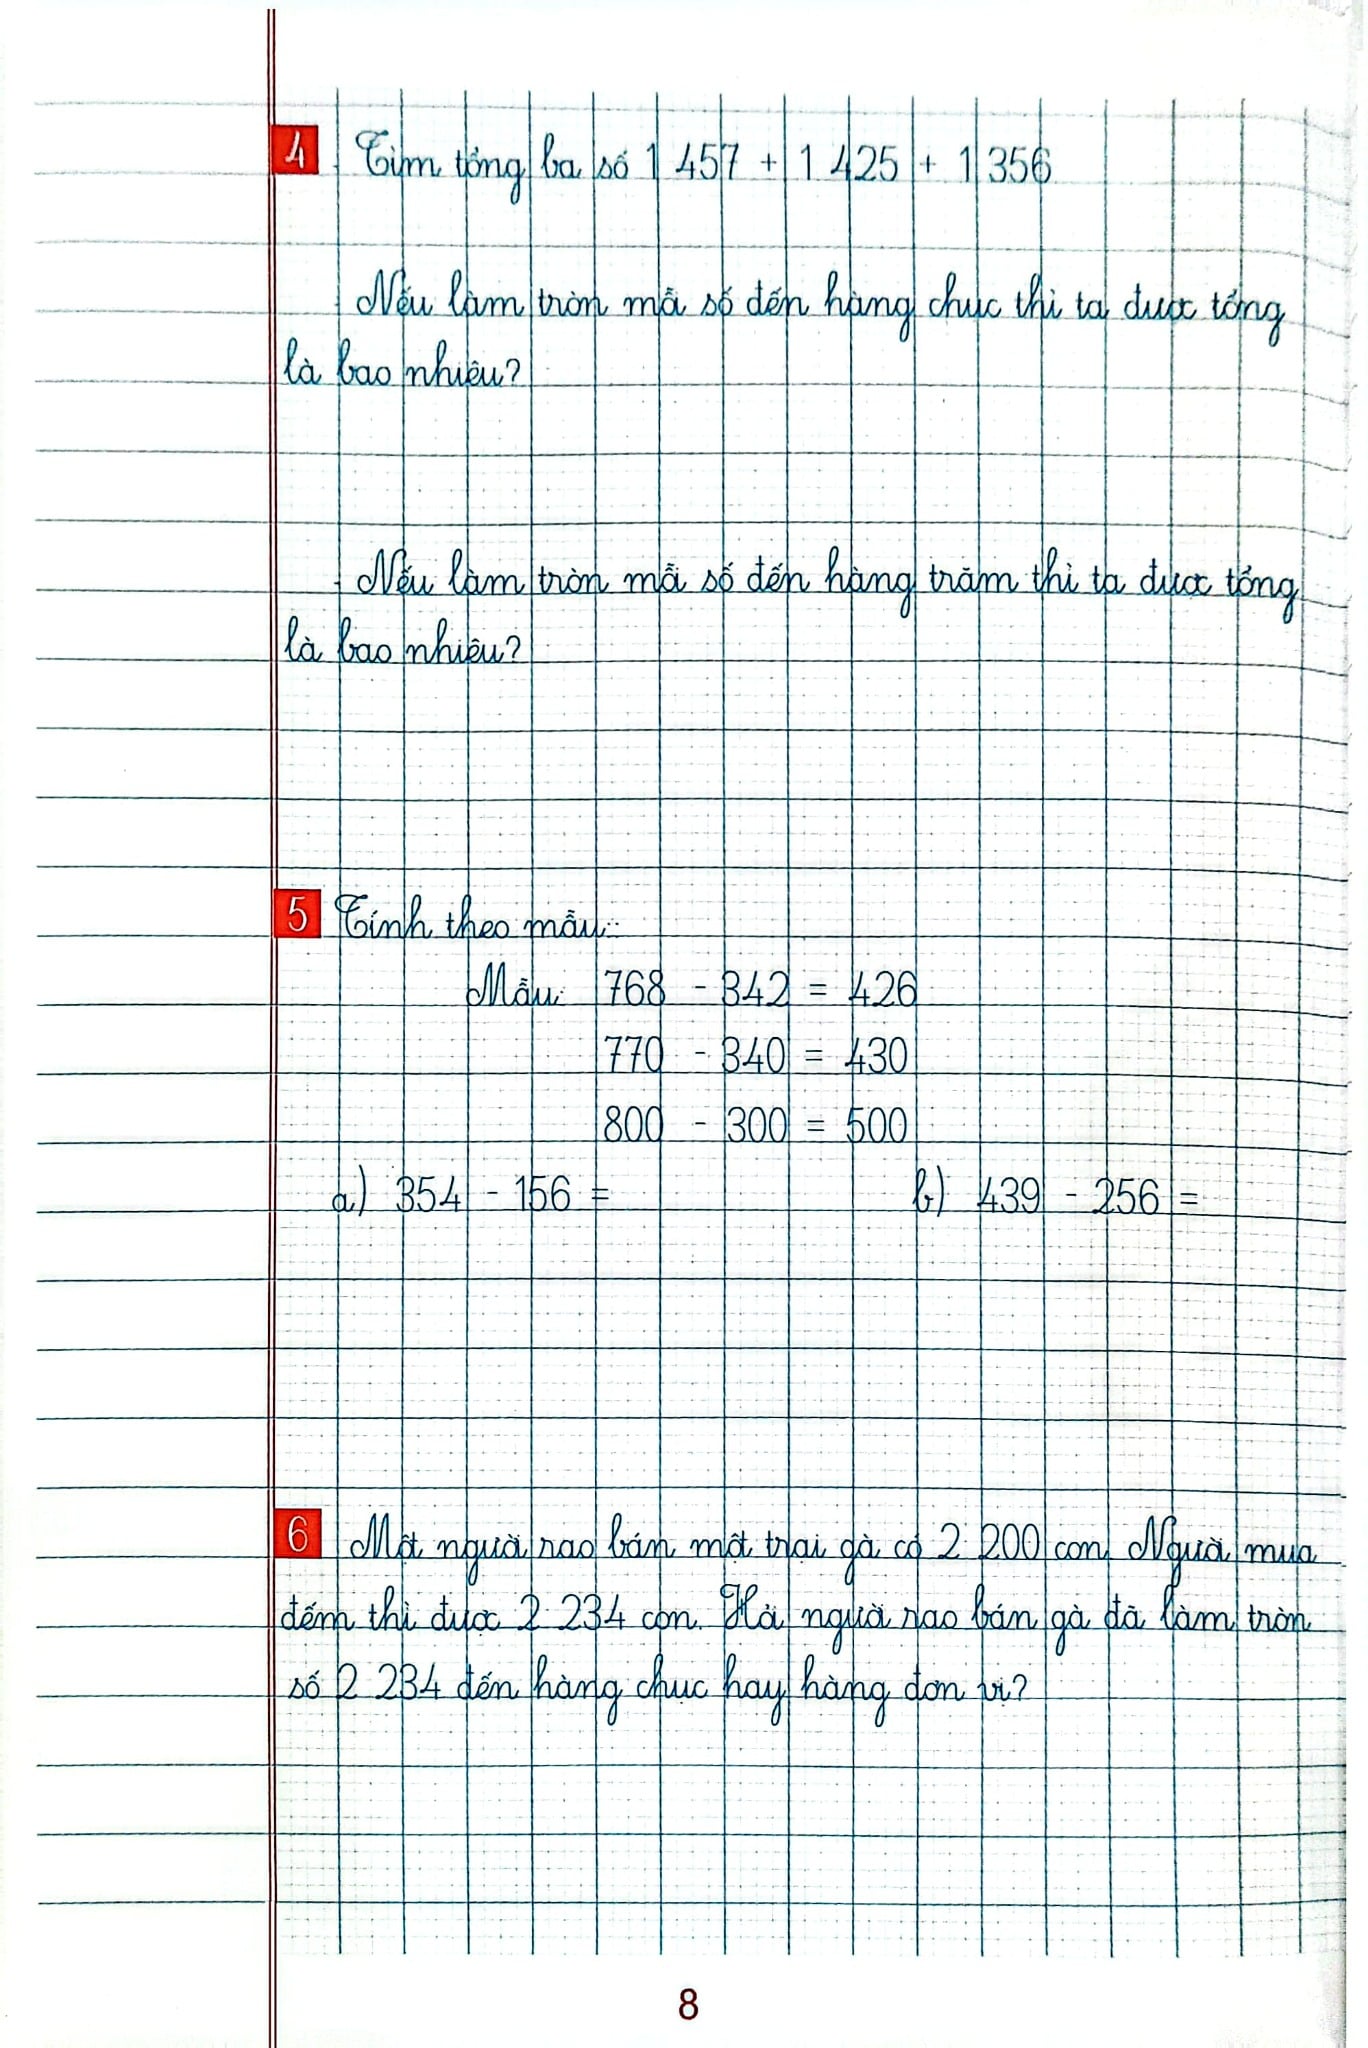 4 Tìm tổng ba số 1 457 + 1 425 + 1 356
Nếu làm tròn mỗi số đến hàng chục thì ta được tổng
là bao nhiêu?
Nếu làm tròn mỗi số đến hàng trăm thì ta được tổng
là bao nhiêu?
5 Tính theo mẫu:
Mẫu: 768 - 342 = 426
770 - 340 = 430
800 - 300 = 500
a) 354 - 156 = b) 439 - 256 =
6 Một người rao bán một trại gà có 2 200 con. Người mua
đếm thì được 2 234 con. Hỏi người rao bán gà đã làm tròn
số 2 234 đến hàng chục hay hàng đơn vị?
8